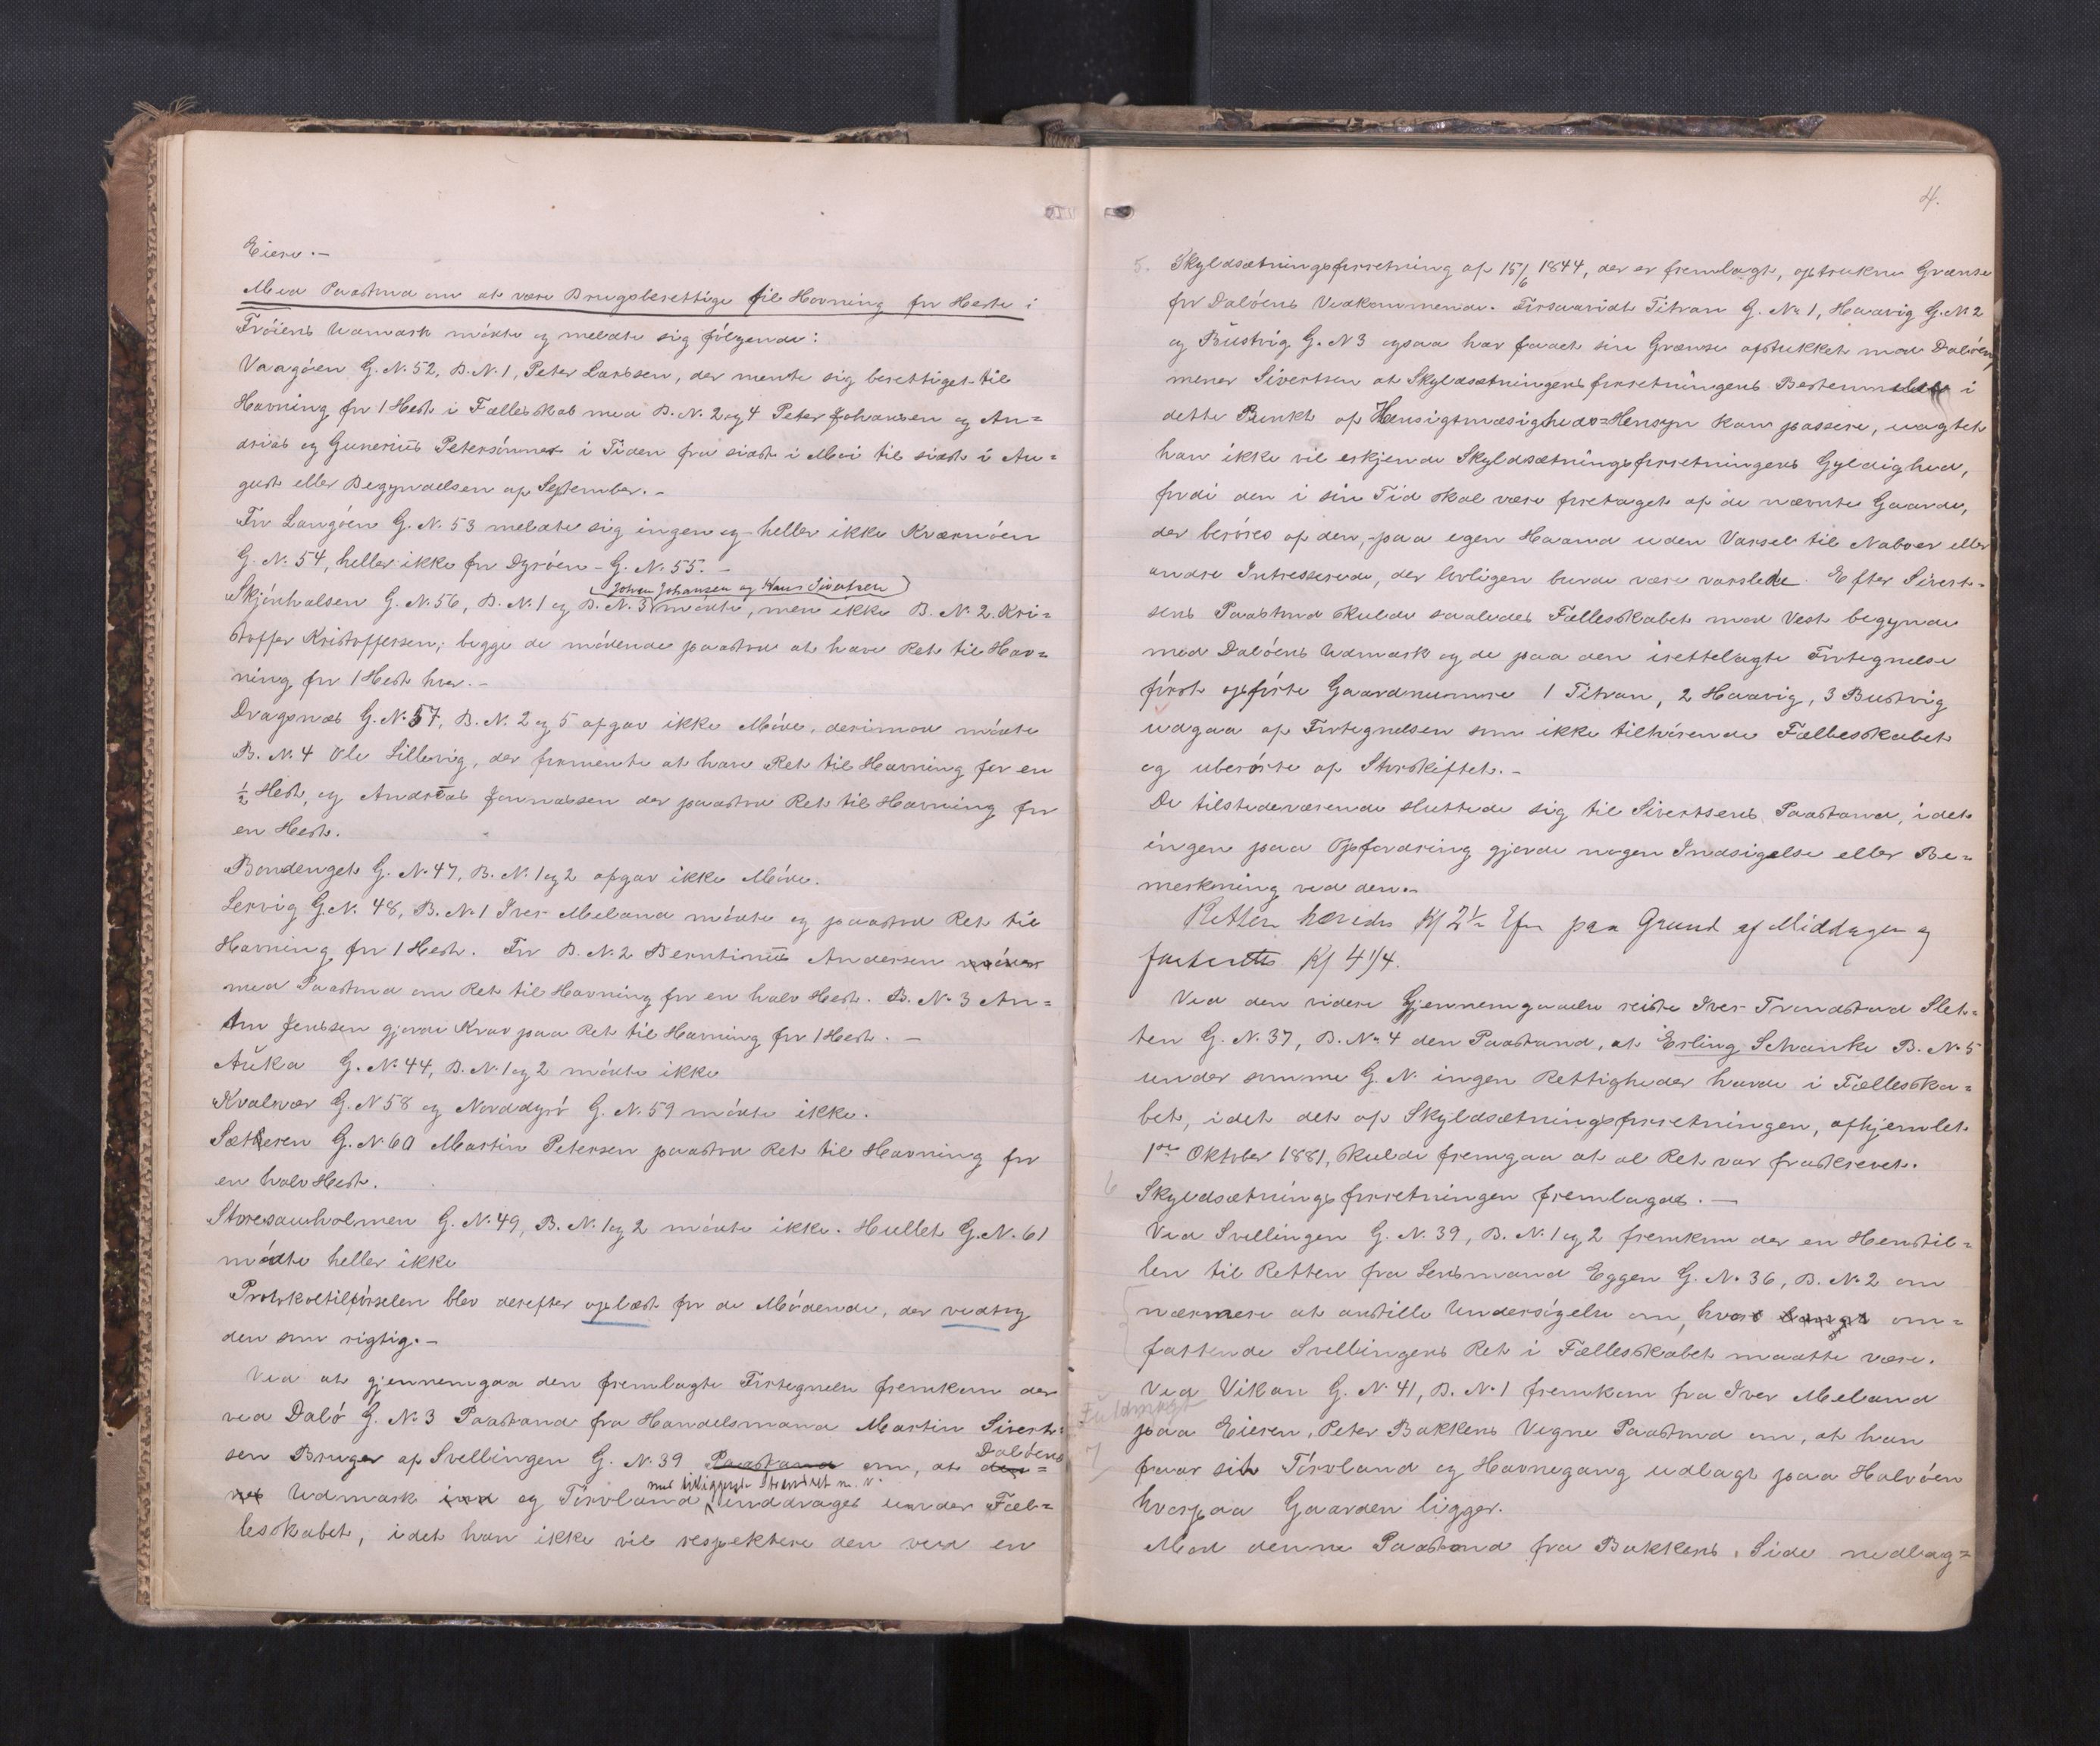 Eiere.-
Med Paastand om at være Brugsberettige til Havning for Heste i
Fröiens Udmark mödte og meldte sig fölgende:
Vaagöen G. N. 52, B. N. 1, Peter Larssen, der mente sig berettiget til
Havning for 1 Hest i Fællesskab med B. N. 2 og 4 Peter Johansen og An=
drias og Gunerius Petersönner i Tiden fra sidst i Mai til sidst i Au=
gust eller Begyndelsen af September.-
For Langöen G. N. 53 meldte sig ingen og heller ikke Kværnöen
G. N. 54, heller ikke for Dyröen - G. N. 55.-
(Johan Johansen og Hans Sivertsen)
Skjönhalsen G. N. 56, B. N. 1 og B. N. 3 mödte, men ikke B. N. 2 Kri=
stoffer Kristoffersen; begge de mödende paastod at have Ret til Hav=
ning for 1 Hest hver.-
Dragsnæs G. N. 57, B. N. 2 og 5 afgav ikke Möde, derimod mödte
B. N. 4 Ole Sillevig, der formente at have Ret til Havning for en
½ Hest, og Andreas Jonnassen der paastod Ret til Havning for
en Hest.
Bondenget G. N. 47, B. N. 1 og 2 afgav ikke Möde.
Lervig G. N. 48, B. N. 1 Iver Meland mödte og paastod Ret til
Havning for 1 Hest. For B. N. 2 Berntinus Andersen mödes
med Paastand om Ret til Havning for en halv Hest. B. N. 3 An=
ton Jenssen gjorde Krav paa Ret til Havning for 1 Hest.-
Auka G. N. 44, B. N. 1 og 2 mödte ikke
Kvalvær G. N 58 og Norddyrö G. N. 59 mödte ikke.
Sætteren G. N. 60 Martin Petersen paastod Ret til Havning for
en halv Hest.
Storesauholmen G. N. 49, B. N. 1 og 2 mödte ikke. Hullet G. N. 61
mödte heller ikke
Protokoltilförselen blev derefter oplæst for de Mödende, der vedtog
den som rigtig.-
Ved at gjennemgaa den fremlagte Fortegnelse fremkom der
ved Dalö G. No 3 Paastand fra Handelsmand Martin Sivert=
sen Bruger af Svellingen G. N. 39 Paastand om, at den= Dalöens
nes Udmark ind og Törvland med tilliggende Strandret m. v. inddrages under Fæl=
lesskabet, idet han ikke vil respektere den ved en
4.
5. Skyldsætningsforretning af 15/6 1844, der er fremlagt, optrukne Grændse
for Dalöens Vedkommende. Forsaavidt Titran G. No 1, Haavig G. N. 2
og Bustvig G. N 3 ogsaa har faaet sin Grænse afstukket mod Dalöen,
mener Sivertsen at Skyldsætningensforretningens Bestemmelse i
dette Punkt af Hensigtmæsigheds=Hensyn kan passere, uagtet
han ikke vil erkjende Skyldsætningsforretningens Gyldighed,
fordi den i sin Tid skal være foretaget af de nævnte Gaarde,
der beröres af den, paa egen Haand uden Varsel til Naboer eller
andre Intresserede, der lovligen burde være varslede. Efter Sivert=
sens Paastand skulde saaledes Fællesskabet mod Vest begynde
med Dalöens Udmark og de paa den iretteslagte Fortegnelse
först opförte Gaardnummere 1 Titran, 2 Haavig, 3 Bustvig
udgaa af Fortegnelsen som ikke tilhörende Fællesskabet
og uberörte af Storskiftet.-
De tilstedeværende sluttede sig til Sivertsens Paastand, idet
ingen paa Opfordring gjorde nogen Indsigelse eller Be=
merkning ved den.-
Retten hævedes Kl 2½ Efm paa Grund af Middagen og
fortsattes Kl 4¼.
Ved den videre Gjennemgaaelse reiste Iver Trondstad Slet=
ten G. N. 37, B. No 4 den Paastand, at Erling Schanke B. N. 5
under samme G. N. ingen Rettigheder havde i Fællesska=
bet, idet det af Skyldsætningsforretningen, afhjemlet
1ste Oktober 1881, skulde fremgaa at al Ret var fraskrevet.
6 Skyldsætningsforretningen fremlagdes.-
Ved Svellingen G. N. 39, B. N. 1 og 2 fremkom der en Henstil=
len til Retten fra Lensmand Eggen G. N. 36, B. N. 2 om
nærmere at anstille Undersögelse om, hvor om=
fattende Svellingens Ret i Fællesskabet maatte være.
Ved Vikan G. N. 41, B. N. 1 fremkom fra Iver Meland
Fuldmagt
paa Eieren, Peter Bakkens Vegne Paastand om, at han
7 faar sit Törvland og Havnegang udlagt paa Halvöen
hvorpaa Gaarden ligger.
Mod denne Paastand fra Bakkens Side nedlag=